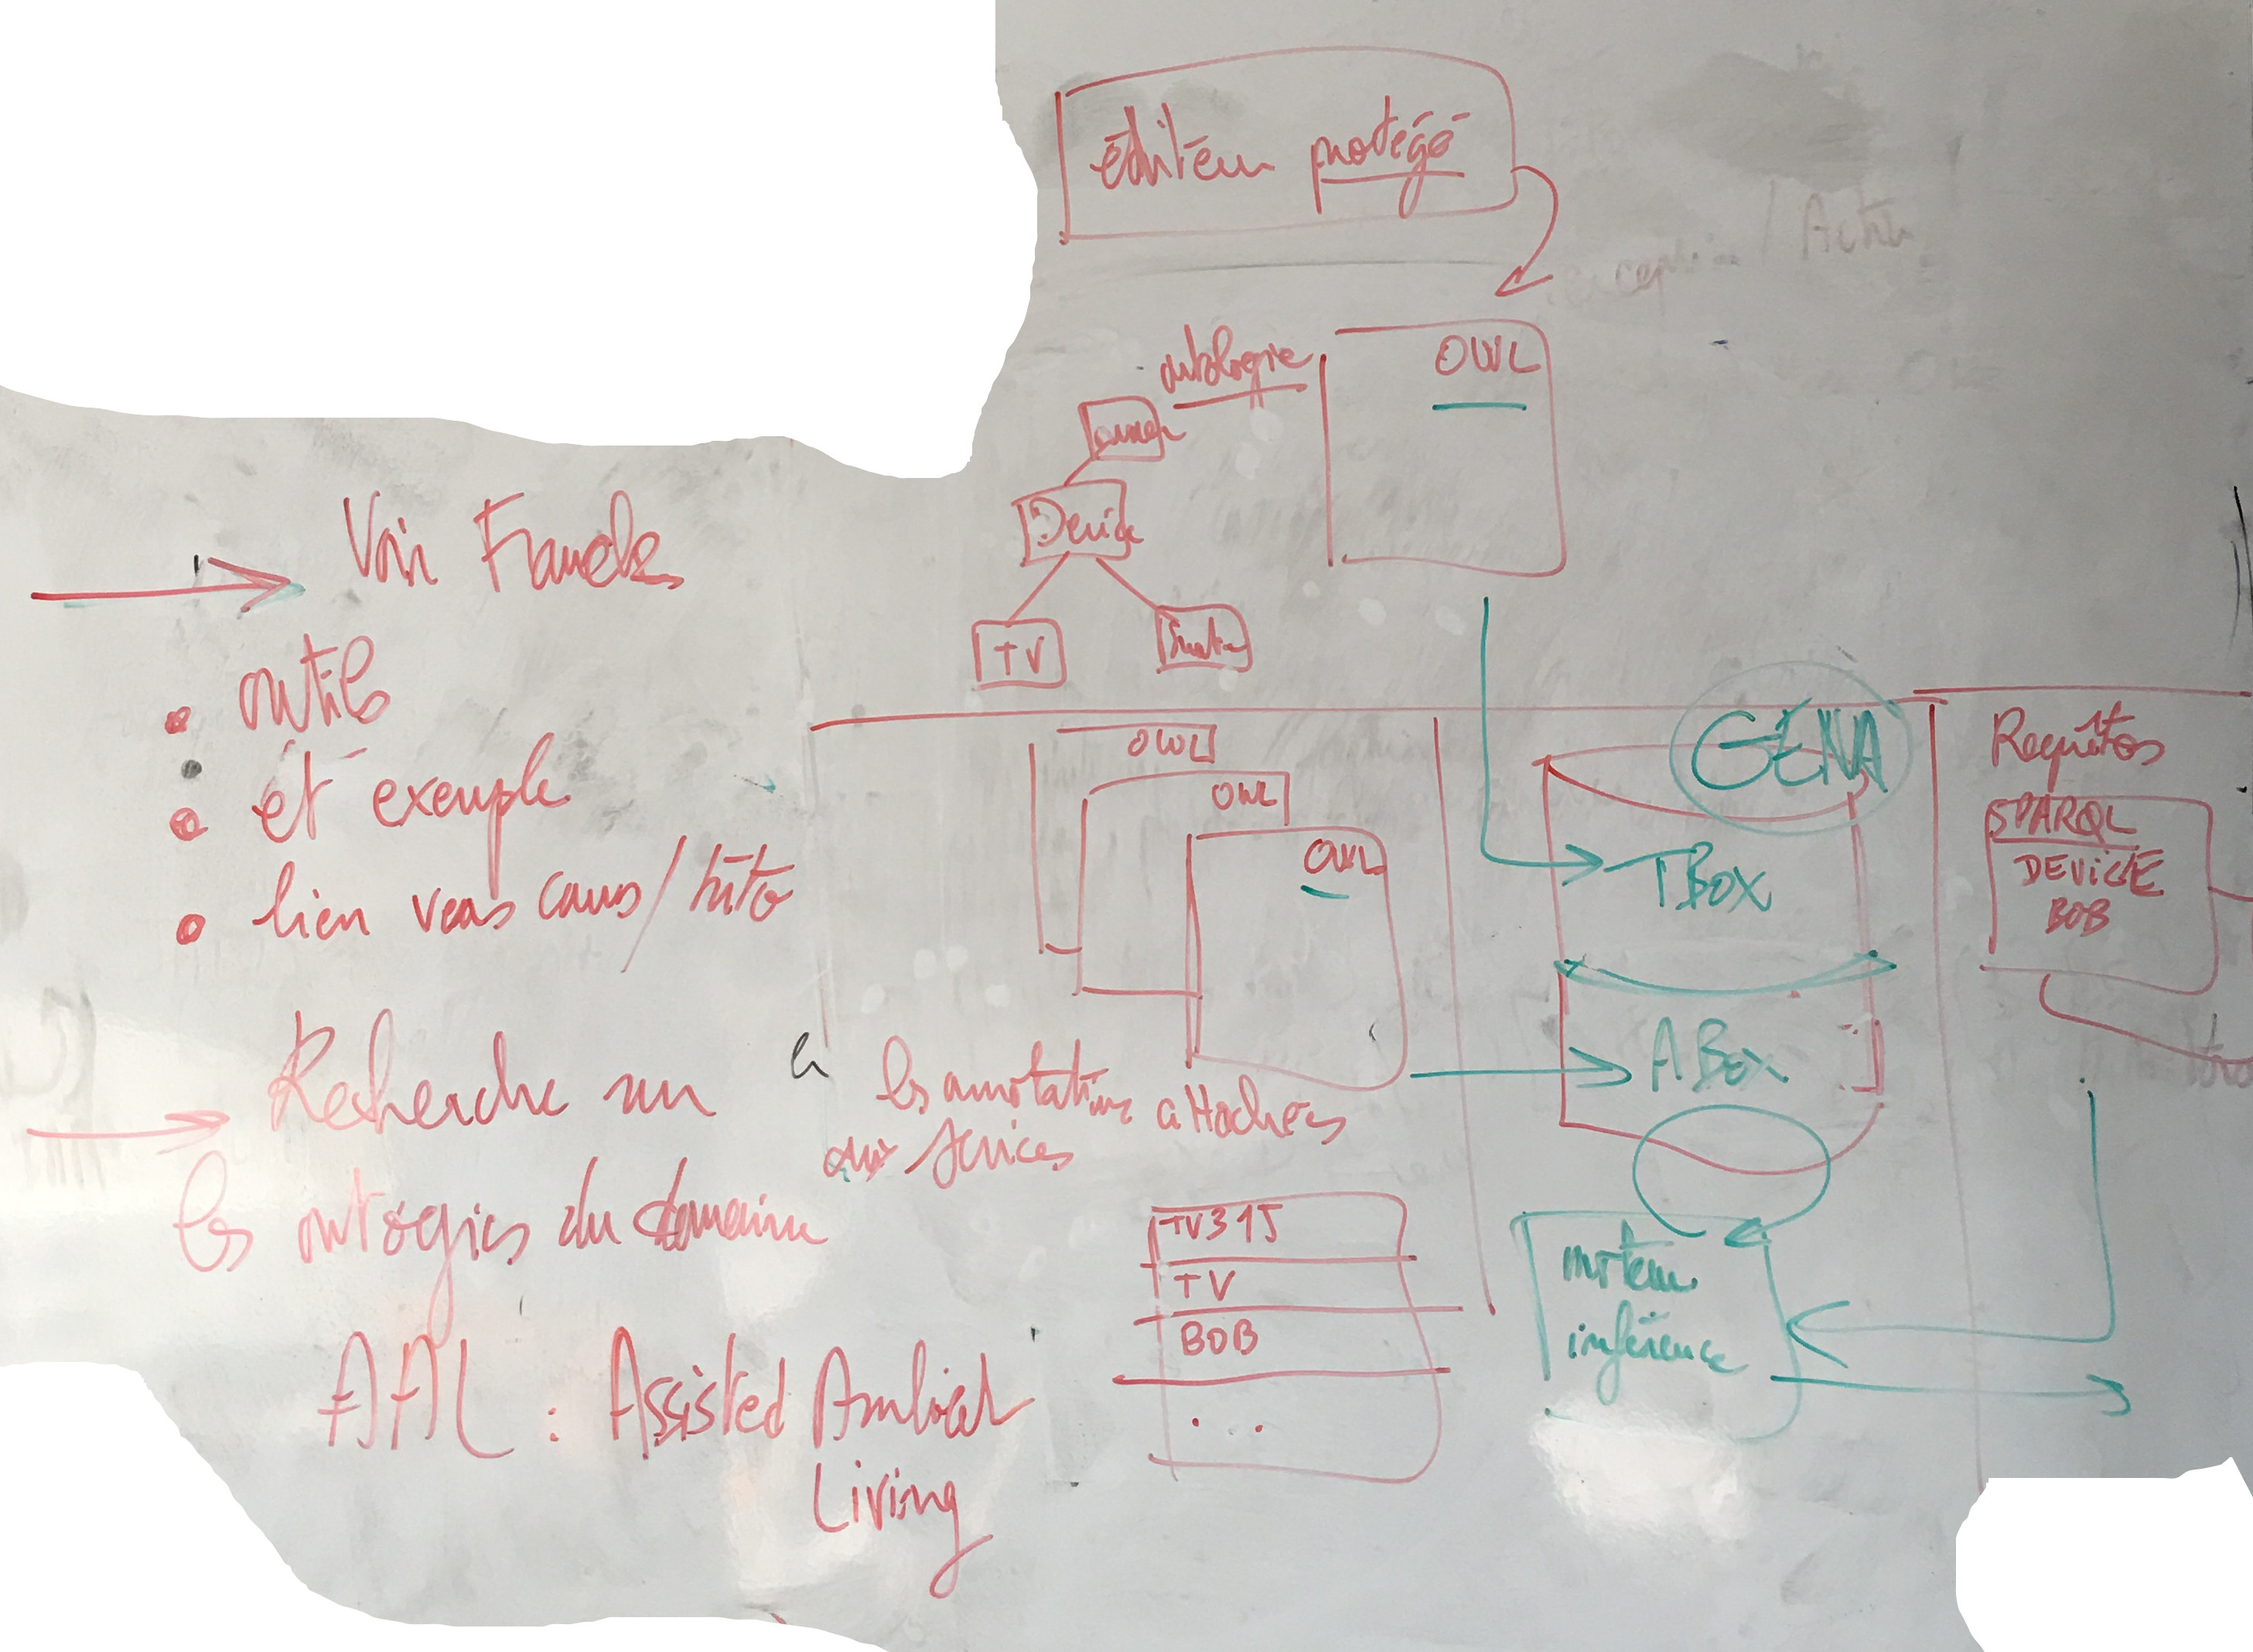 éditeur protégé
ontologie
OWL
Device
TV
Voir Francks
outils
et exemple
lien vers cours / tuto
Recherche sur
les ontologies du domaine
AAL : Assisted Ambient
Living
OWL
OWL
OWL
les annotations attachées
aux services
TV315
TV
BOB
. . .
GENA
TBOX
ABOX
moteur
inférence
Requêtes
SPARQL
DEVICE
BOB